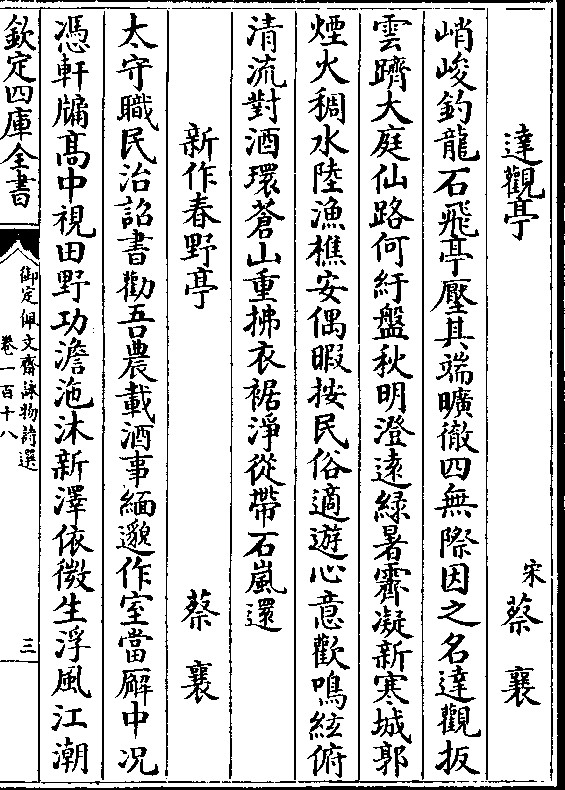 達觀亭　宋蔡襄
峭峻釣龍石飛亭壓其端曠徹四無際因之名達觀扳
雲躋大庭仙路何紆盤秋明澄遠緑暑霽凝新寒城郭
煙火稠水陸漁樵安偶暇按民俗適遊心意歡鳴絃俯
清流對酒環蒼山重拂衣裾淨從帶石嵐還
新作春野亭　蔡襄
太守職民治詔書勸吾農載酒事緬邈作室當廨中況
憑軒牖高中視田野功澹沲沐新澤依微生浮風江潮
欽定四庫全書
御定佩文齋詠物詩選
卷一百十八
三